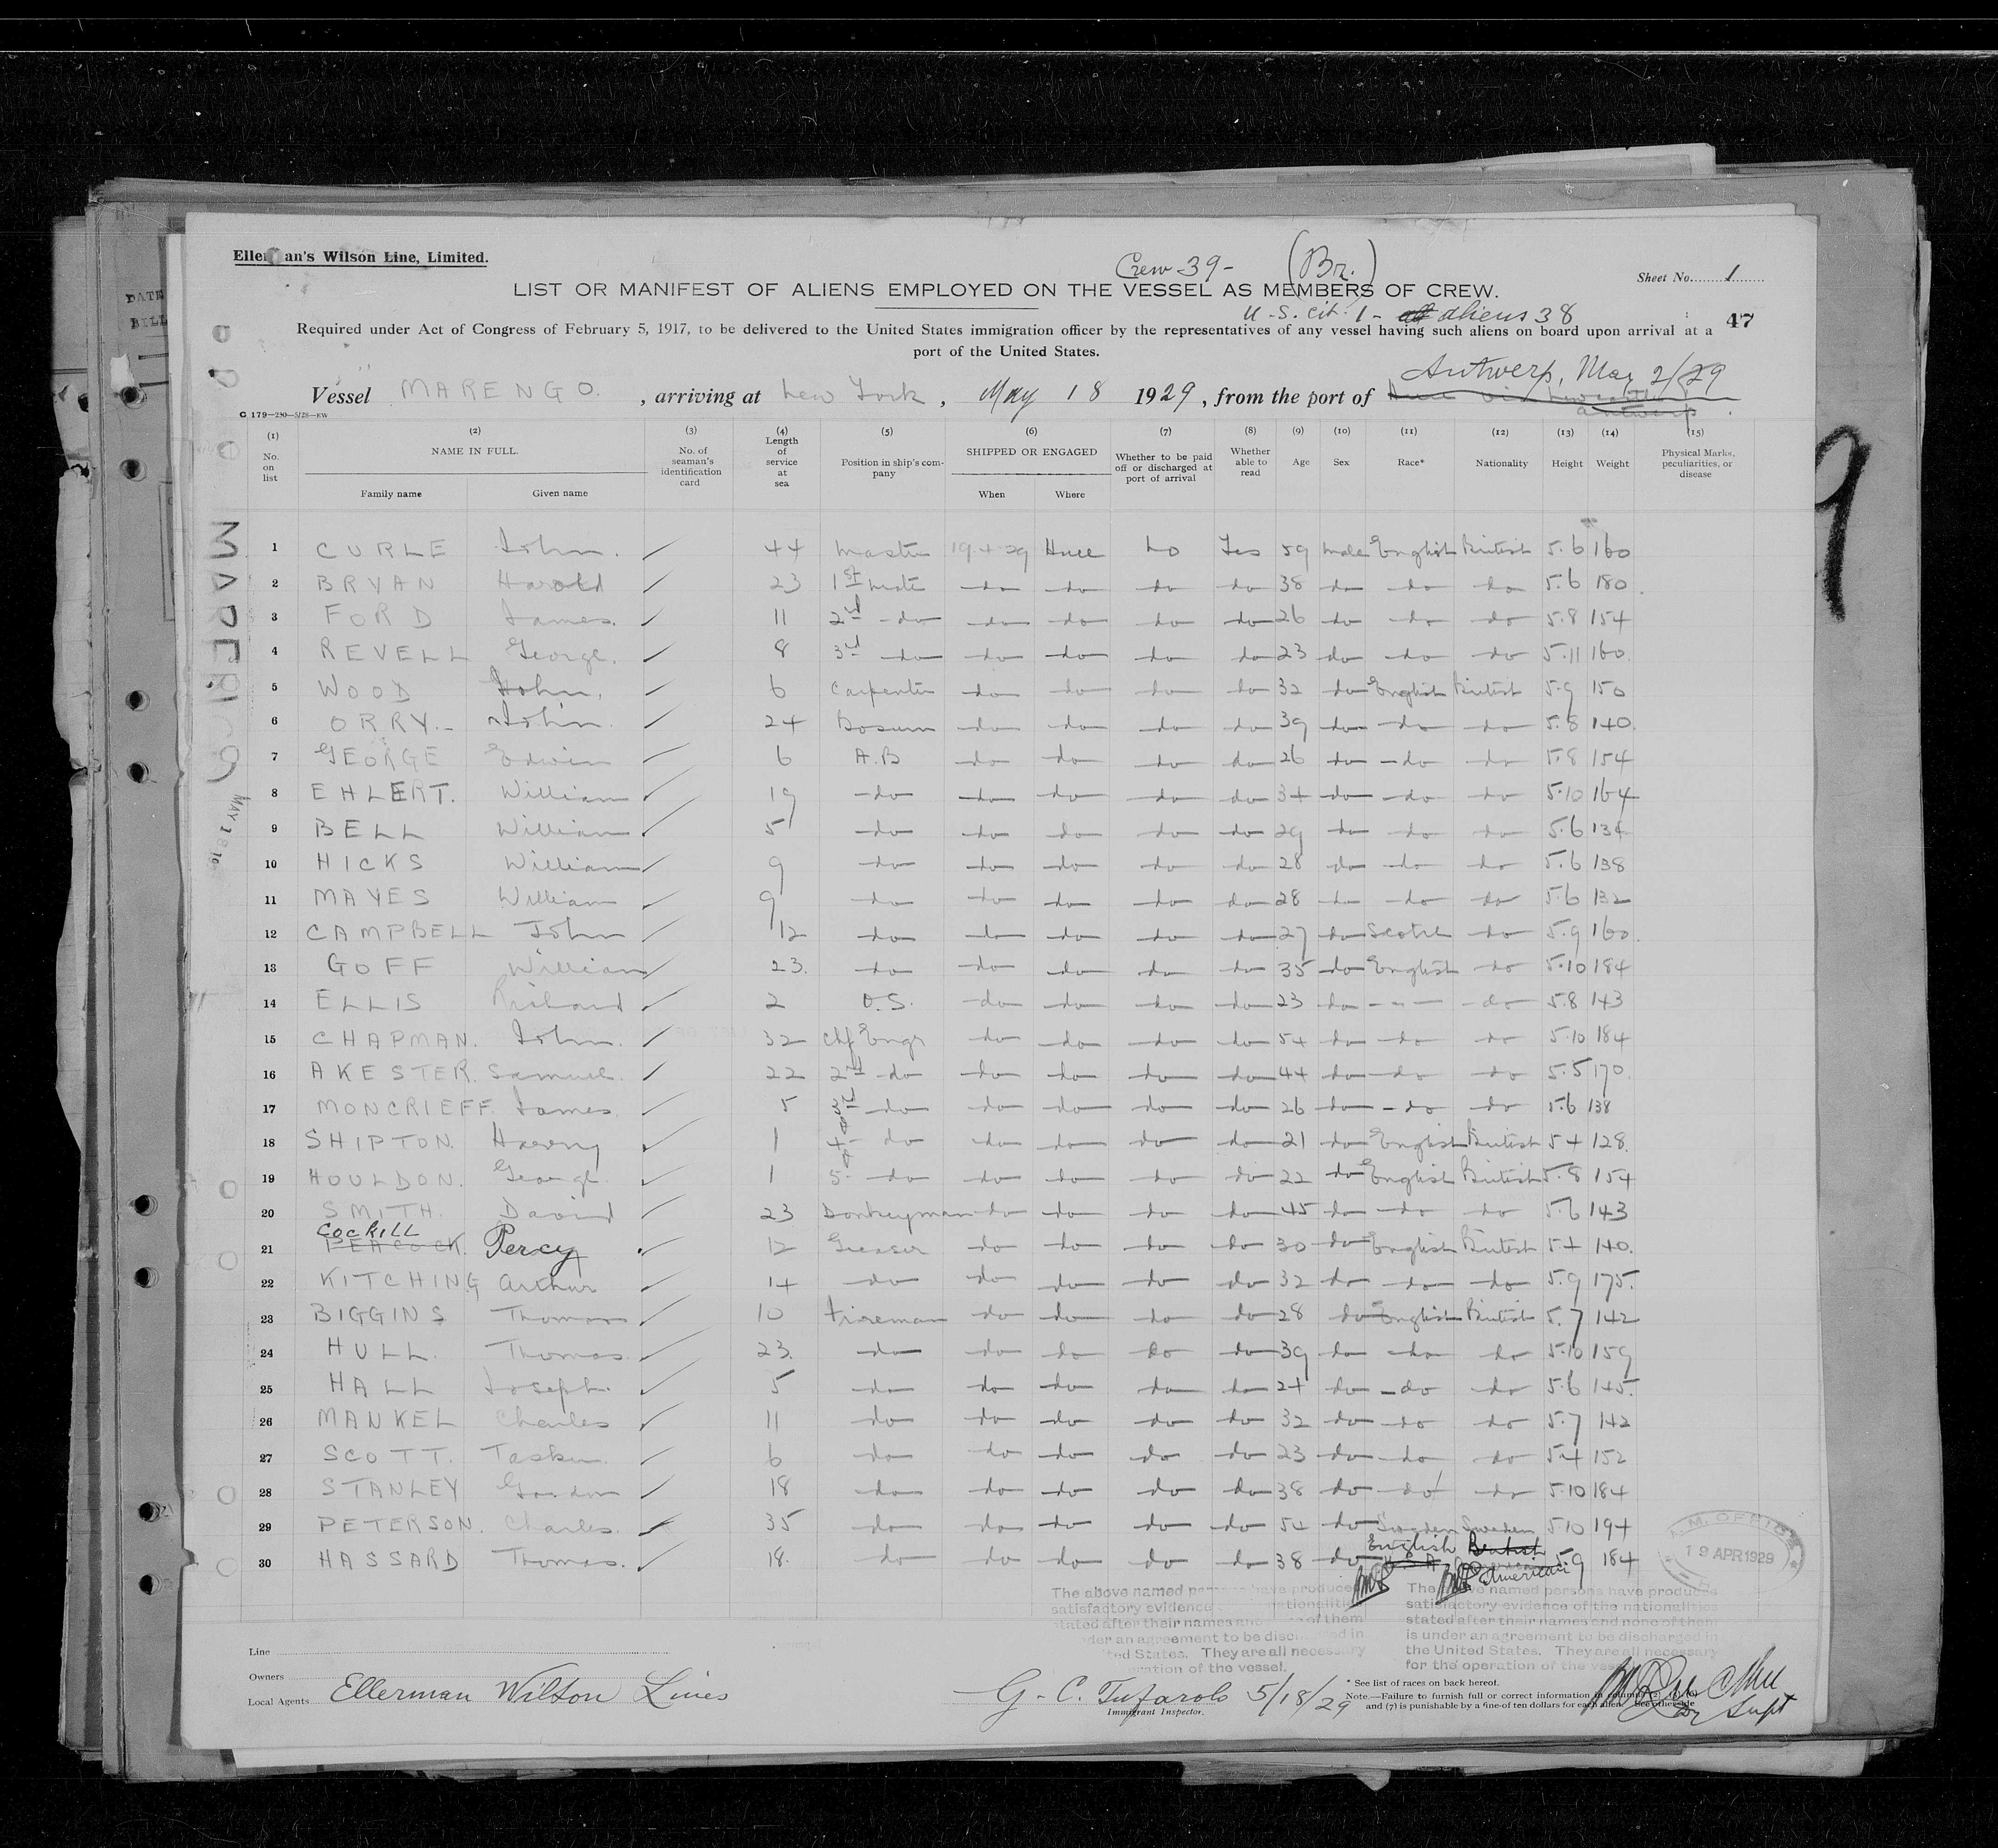 Ellerman's Wilson Line, Limited.
Crew 39 - (Br.)
Sheet No. 1
LIST OR MANIFEST OF ALIENS EMPLOYED ON THE VESSEL AS MEMBERS OF CREW.
U.S. cit. 1 - aliens 38
47
Required under Act of Congress of February 5, 1917, to be delivered to the United States immigration officer by the representatives of any vessel having such aliens on board upon arrival at a
port of the United States.
Antwerp, May 2/29
Vessel MARENGO. , arriving at New York , May 18 1929 , from the port of
Antwerp
C 179—250—5/28—EW
(1) No. on list (2) NAME IN FULL. Family name Given name (3) No. of seaman's identification card (4) Length of service at sea (5) Position in ship's company (6) SHIPPED OR ENGAGED When Where (7) Whether to be paid off or discharged at port of arrival (8) Whether able to read (9) Age (10) Sex (11) Race* (12) Nationality (13) Height (14) Weight (15) Physical Marks, peculiarities, or disease
1 CURLE John. ✓ 44 Master 19.4.29 Hull No Yes 59 Male English British 5.6 160
2 BRYAN Harold ✓ 23 1st Mate do do do do 38 do do do 5.6 180
3 FORD James. ✓ 11 2nd do do do do do 26 do do do 5.8 154
4 REVELL George. ✓ 8 3rd do do do do do 23 do do do 5.11 160
5 WOOD John. ✓ 6 Carpenter do do do do 32 do English British 5.9 150
6 ORRY. John. ✓ 24 Bosun do do do do 39 do do do 5.8 140
7 GEORGE Edwin ✓ 6 A.B do do do do 26 do do do 5.8 154
8 EHLERT. William ✓ 19 do do do do do 34 do do do 5.10 164
9 BELL William ✓ 5 do do do do do 29 do do do 5.6 134
10 HICKS William ✓ 9 do do do do do 28 do do do 5.6 138
11 MAYES William ✓ 9 do do do do do 28 do do do 5.6 132
12 CAMPBELL John ✓ 12 do do do do do 27 do Scotch do 5.9 160
13 GOFF William ✓ 23. do do do do do 35 do English do 5.10 184
14 ELLIS Richard ✓ 2 O.S. do do do do 23 do - " - do 5.8 143
15 CHAPMAN. John. ✓ 32 Chf Engr do do do do 54 do do do 5.10 184
16 AKESTER. Samuel. ✓ 22 2nd do do do do do 44 do do do 5.5 170
17 MONCRIEFF. James. ✓ 5 3rd do do do do do 26 do do do 5.6 138
18 SHIPTON. Harry ✓ 1 4th do do do do do 21 do English British 5.4 128.
19 HOULDON. George ✓ 1 5 do do do do do 22 do English British 5.8 154
20 SMITH. David 23 Donkeyman do do do do 45 do do do 5.6 143
COCKILL
21 PEACOCK. Percy ✓ 12 Greaser do do do do 30 do English British 5.4 140.
22 KITCHING Arthur ✓ 14 do do do do do 32 do do do 5.9 175.
23 BIGGINS Thomas ✓ 10 Fireman do do do do 28 do English British 5.7 142
24 HULL. Thomas ✓ 23. do do do do do 39 do do do 5.10 159
25 HALL Joseph. ✓ 5 do do do do do 24 do do do 5.6 145.
26 MANKEL Charles ✓ 11 do do do do do 32 do do do 5.7 142
27 SCOTT. Tasker ✓ 6 do do do do do 23 do do do 5.4 152
28 STANLEY Gordon ✓ 18 do do do do do 38 do do do 5.10 184
29 PETERSON. Charles. ✓ 35 do do do do do 54 do Sweden Sweden 5.10 194
English British
30 HASSARD Thomas. ✓ 18. do do do do do 38 do U.S.A American 5.9 184
19 APR 1929
The above named persons have produced
satisfactory evidence of the nationalities
stated after their names and none of them
is under an agreement to be discharged in
the United States. They are all necessary
for the operation of the vessel.
Line
Owners
Local Agents Ellerman Wilson Lines
G. C. Tufarolo 5/18/29
Immigrant Inspector.
* See list of races on back hereof.
Note.—Failure to furnish full or correct information in columns (2), (5), (6) and (7) is punishable by a fine of ten dollars for each alien. See other side
Supt
MARENGO
MAY 18
DATE
BILL
9